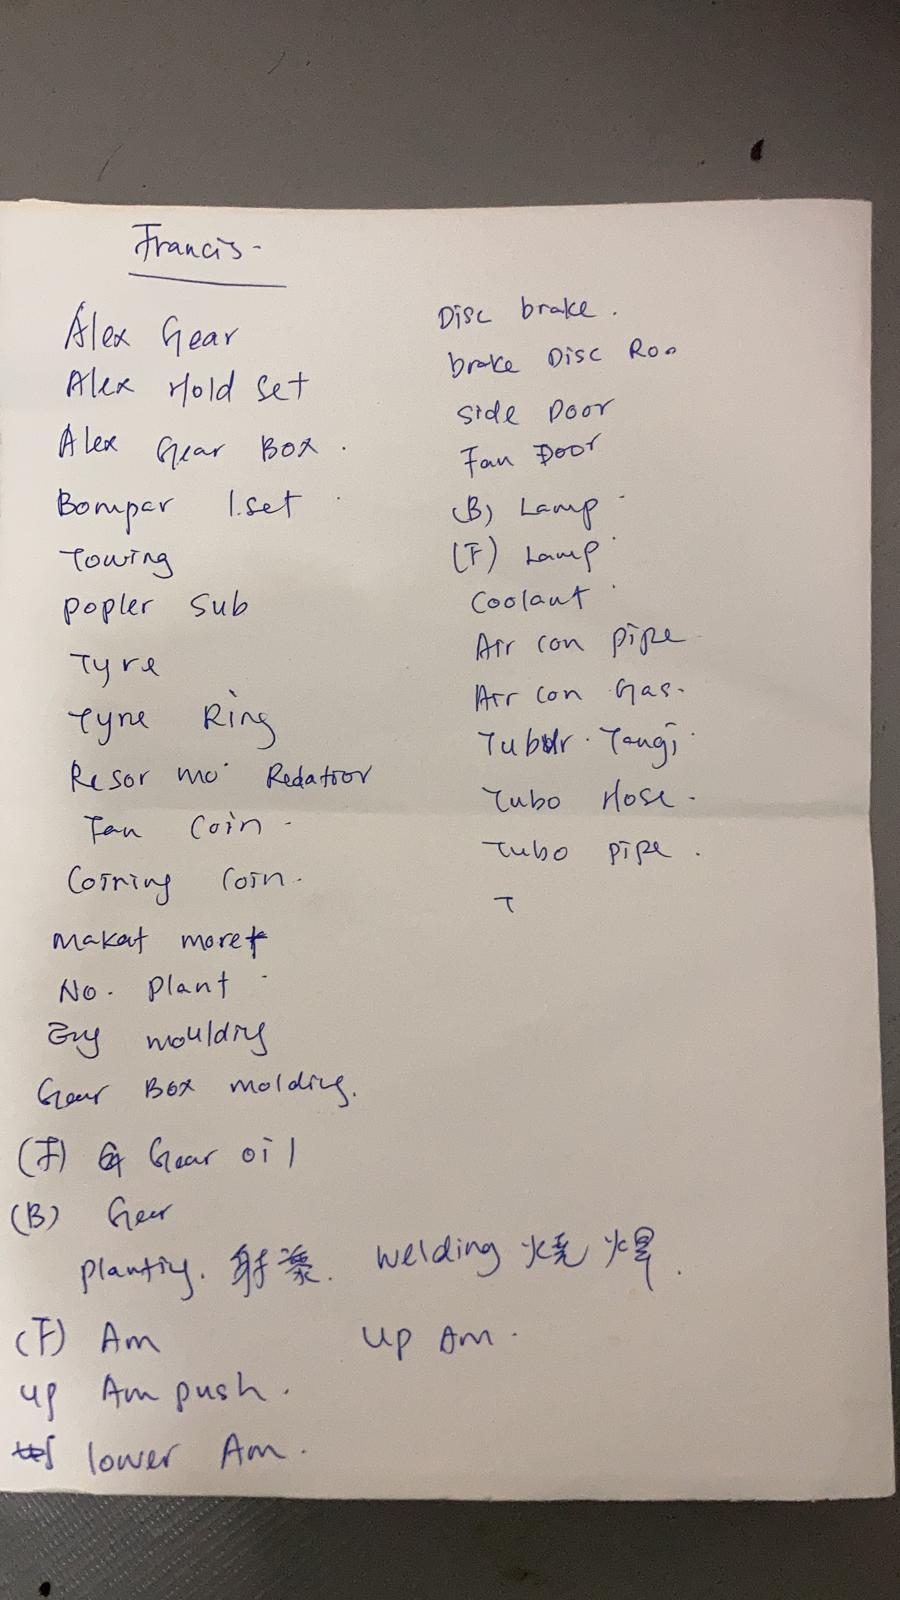 Francis-
Alex Gear
Alex Hold set
Alex Gear Box.
Bompar 1.set
Towing
Popler Sub
Tyre
Tyre Ring
Resor mo Redatior
Fan Coin-
Coining Coin.
Makat more
No. Plant
Eng moulding
Gear Box molding.
(F) Gear oil
(B) Gear
planting. 射漆. Welding 燒焊.
(F) Am up Am.
up Am push.
lower Am.
Disc brake.
brake Disc Roo
Side Door
Fan Door
(B) Lamp
(F) Lamp
Coolant
Air con pipe
Air con Gas.
Tangi
Tubo Hose.
Tubo pipe.
T